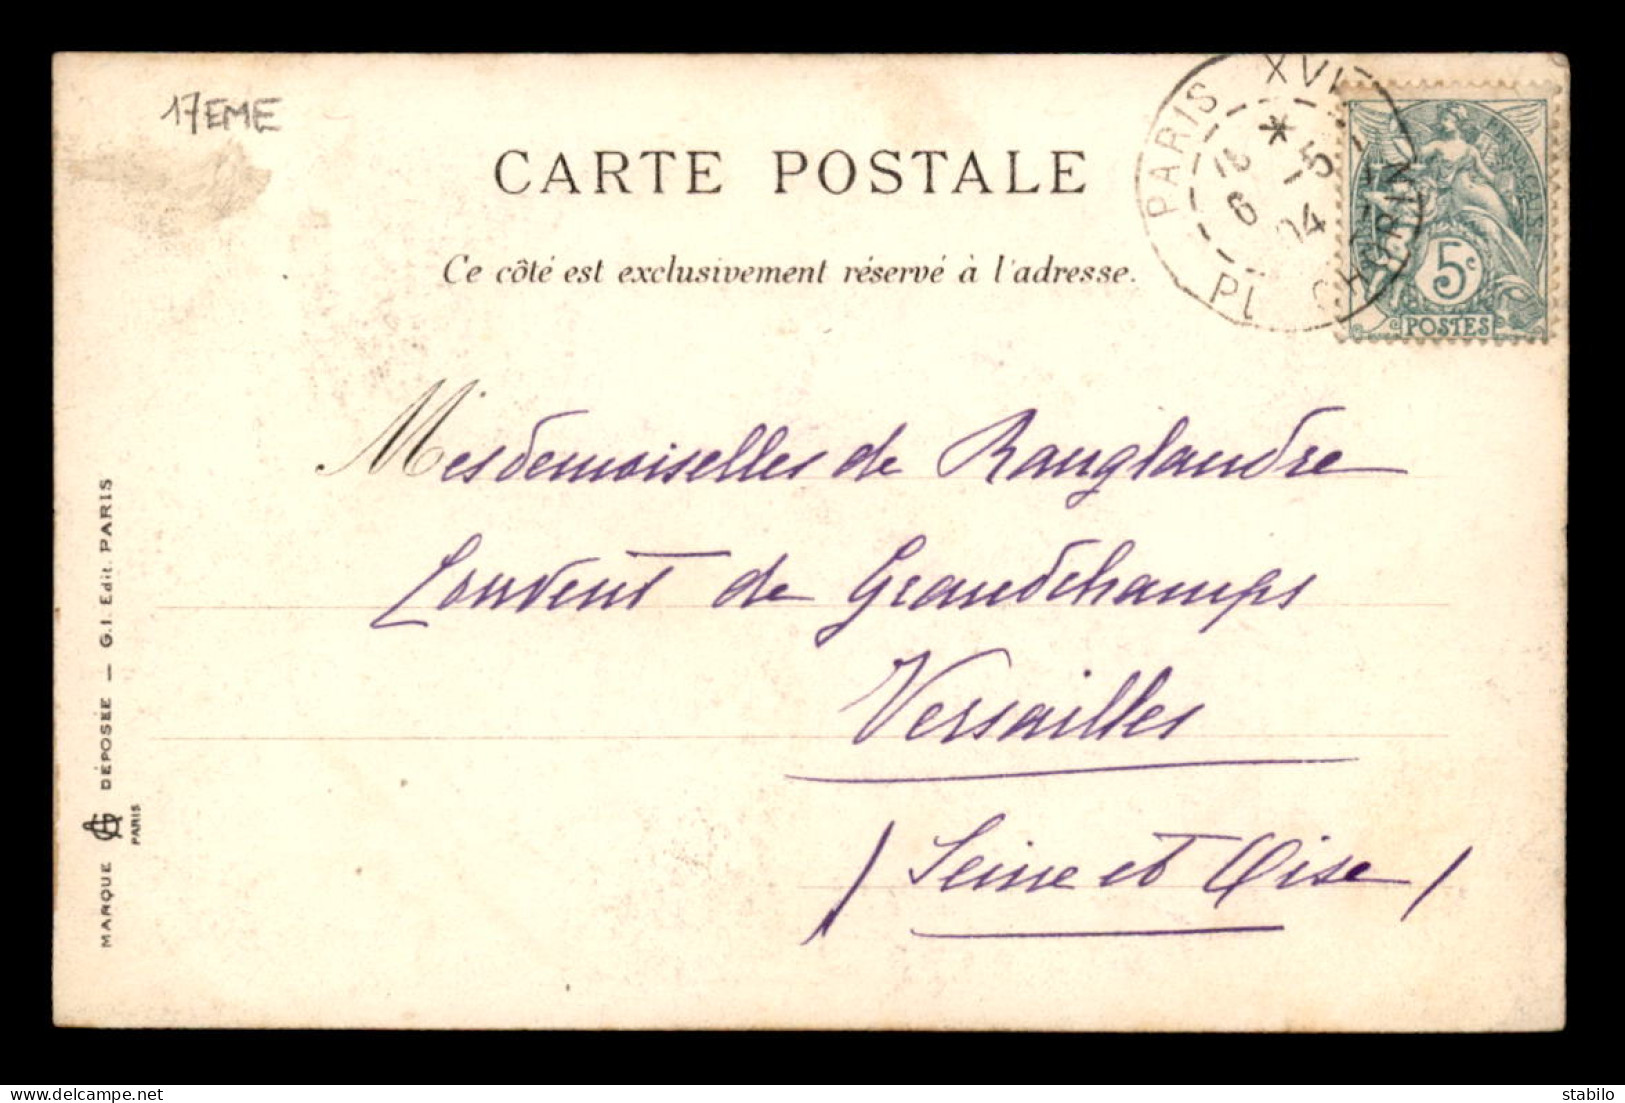 17EME
CARTE POSTALE
Ce côté est exclusivement réservé à l'adresse.
PARIS XVI
* 5
18 1
6 04
PL CHORIN
5c
POSTES
Mesdemoiselles de Ranglaudre
Couvent de Grandchamps
Versailles
(Seine et Oise)
MARQUE DÉPOSÉE — G.I. Edit. PARIS
PARIS
delcampe.net
stabilo